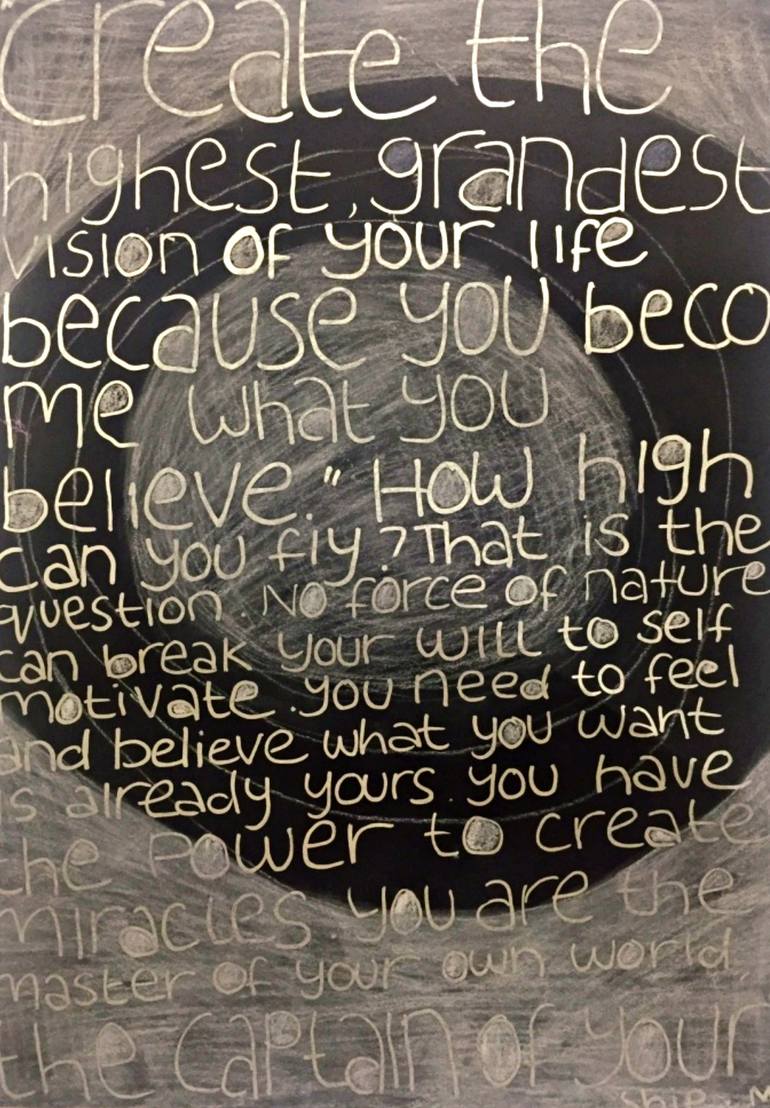 "Create the
highest, grandest
vision of your life
because you beco
me what you
believe." How high
can you fiy? That is the
question. No force of nature
can break your will to self
motivate. you need to feel
and believe what you want
is already yours. you have
the Power to create
miracles you are the
master of your own world,
the captain of your
ship. M